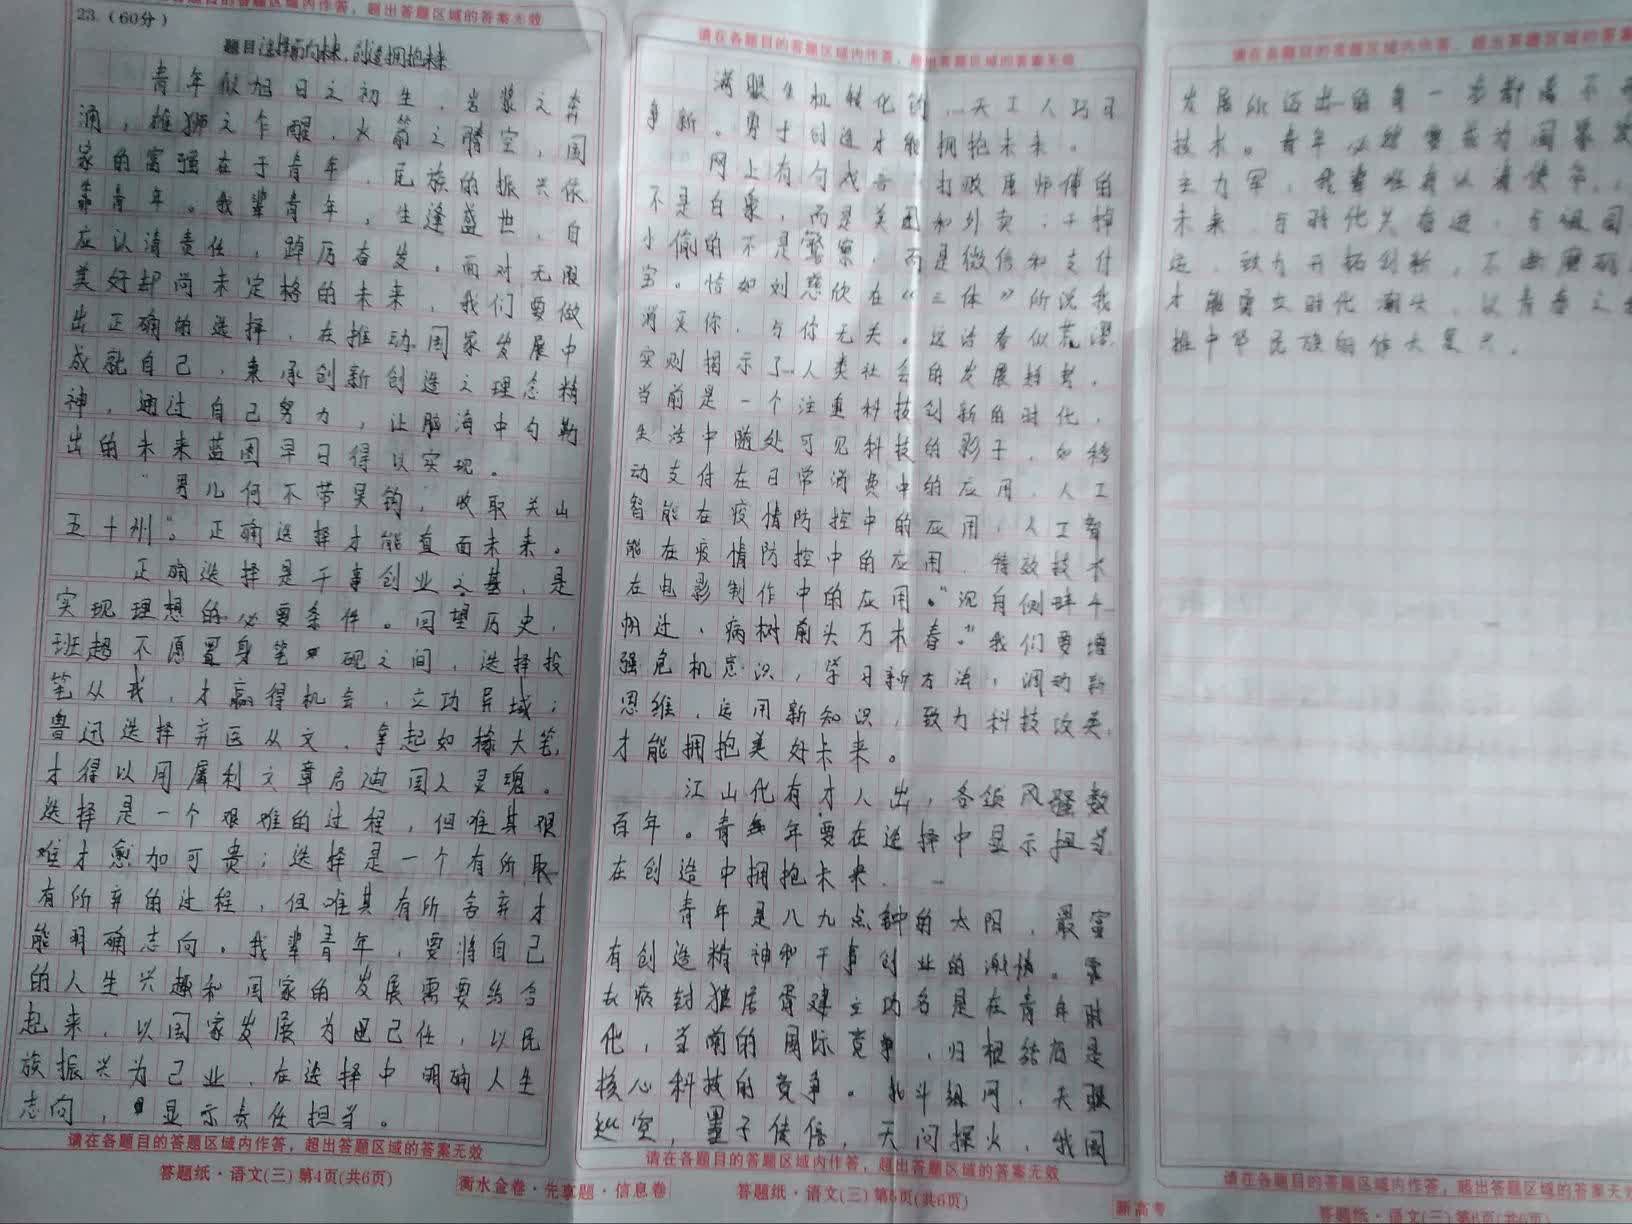 请在各题目的答题区域内作答，超出答题区域的答案无效
23.（60分）
题目 选择面向未来，创造拥抱未来
青年似旭日之初生，岩浆之奔
涌，雄狮之乍醒，火箭之腾空，国
家的富强在于青年，民族的振兴依
靠青年。我辈青年，生逢盛世，自
应认清责任，踔厉奋发。面对无限
美好却尚未定格的未来，我们要做
出正确的选择，在推动国家发展中
成就自己，秉承创新创造之理念精
神，通过自己努力，让脑海中勾勒
出的未来蓝图早日得以实现。
“男儿何不带吴钩，收取关山
五十州”。正确选择才能直面未来。
正确选择是干事创业之基，是
实现理想的必要条件。回望历史，
班超不愿置身笔砚之间，选择投
笔从戎，才赢得机会，立功异域；
鲁迅选择弃医从文，拿起如椽大笔，
才得以用犀利文章启迪国人灵魂。
选择是一个艰难的过程，但唯其艰
难才愈加可贵；选择是一个有所取
有所弃的过程，但唯其有所舍弃才
能明确志向。我辈青年，要将自己
的人生兴趣和国家的发展需要结合
起来，以国家发展为己任，以民
族振兴为己业，在选择中明确人生
志向，显示责任担当。
请在各题目的答题区域内作答，超出答题区域的答案无效
答题纸·语文(三) 第4页(共6页)
衡水金卷·先享题·信息卷
请在各题目的答题区域内作答，超出答题区域的答案无效
满眼生机转化钧，天工人巧日
争新。勇于创造才能拥抱未来。
网上有句戏言：打败康师傅的
不是白象，而是美团和外卖；干掉
小偷的不是警察，而是微信和支付
宝。恰如刘慈欣在《三体》所说我
消灭你，与你无关。这话看似荒谬
实则揭示了人类社会的发展趋势。
当前是一个注重科技创新的时代，
生活中随处可见科技的影子，如移
动支付在日常消费中的应用，人工
智能在疫情防控中的应用，人工智
能在疫情防控中的应用，特效技术
在电影制作中的应用。“沉舟侧畔千
帆过，病树前头万木春。”我们要增
强危机意识，学习新方法，调动新
思维，运用新知识，致力科技攻关，
才能拥抱美好未来。
江山代有才人出，各领风骚数
百年。青年要在选择中显示担当
在创造中拥抱未来。
青年是八九点钟的太阳，最富
有创造精神和干事创业的激情。霍
去病封狼居胥建立功名是在青年时
代，当前的国际竞争，归根结底是
核心科技的竞争。北斗组网，天眼
巡空，墨子传信，天问探火，我国
请在各题目的答题区域内作答，超出答题区域的答案无效
答题纸·语文(三) 第5页(共6页)
新高考
请在各题目的答题区域内作答，超出答题区域的答案
发展所迈出的每一步都离不开
技术。青年必将要成为国家发
主力军，我辈唯有认清使命，
未来，与时代共奋进，与祖国
运，致力开拓创新，不断磨砺
才能勇立时代潮头，以青春之
推中华民族的伟大复兴。
请在各题目的答题区域内作答，超出答题区域的答案无效
答题纸·语文(三) 第6页(共6页)